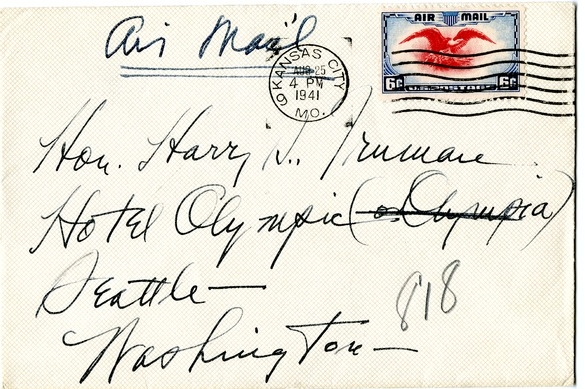 Air Mail
KANSAS CITY
AUG 25
4 PM
1941
MO.
AIR MAIL
6¢ 6¢
Hon. Harry S. Truman
Hotel Olympic (or Olympia)
Seattle —
Washington —
818